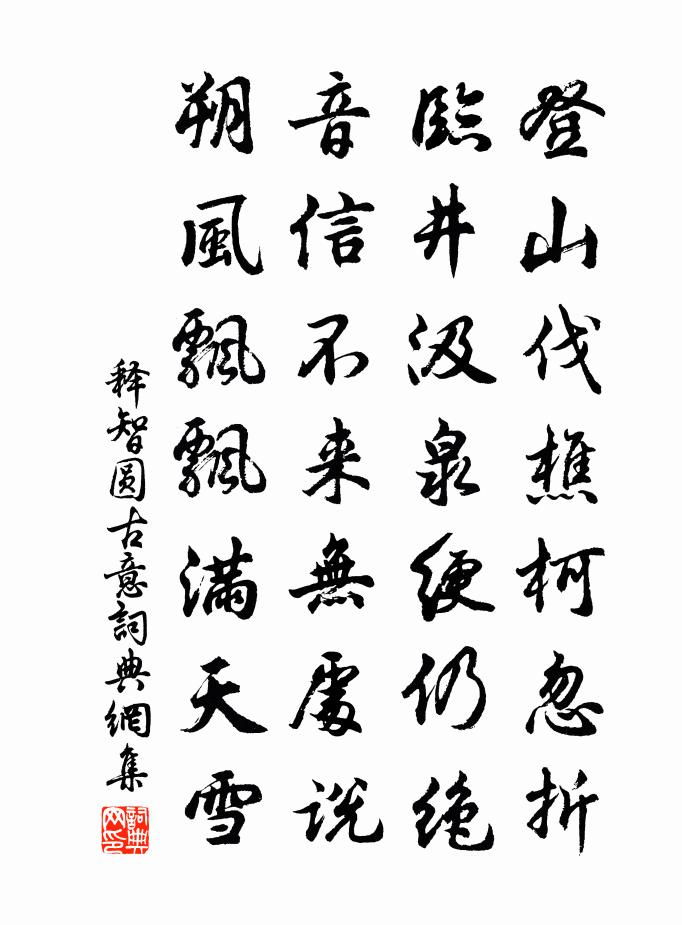 登山伐樵柯忽折
臨井汲泉綆仍絶
音信不来無處説
朔風飄飄満天雪
释智圆古意詞典網集
詞典网印